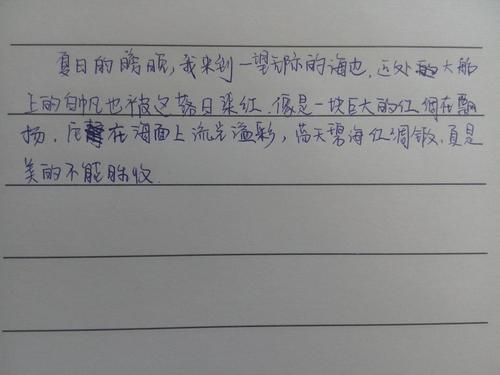 夏日的傍晚,我来到一望无际的海边,近处的大船
上的白帆也被这落日染红.像是一块巨大的红绸在飘
扬.尽在海面上流光溢彩,蓝天碧海红绸缎.真是
美的不能胜收.